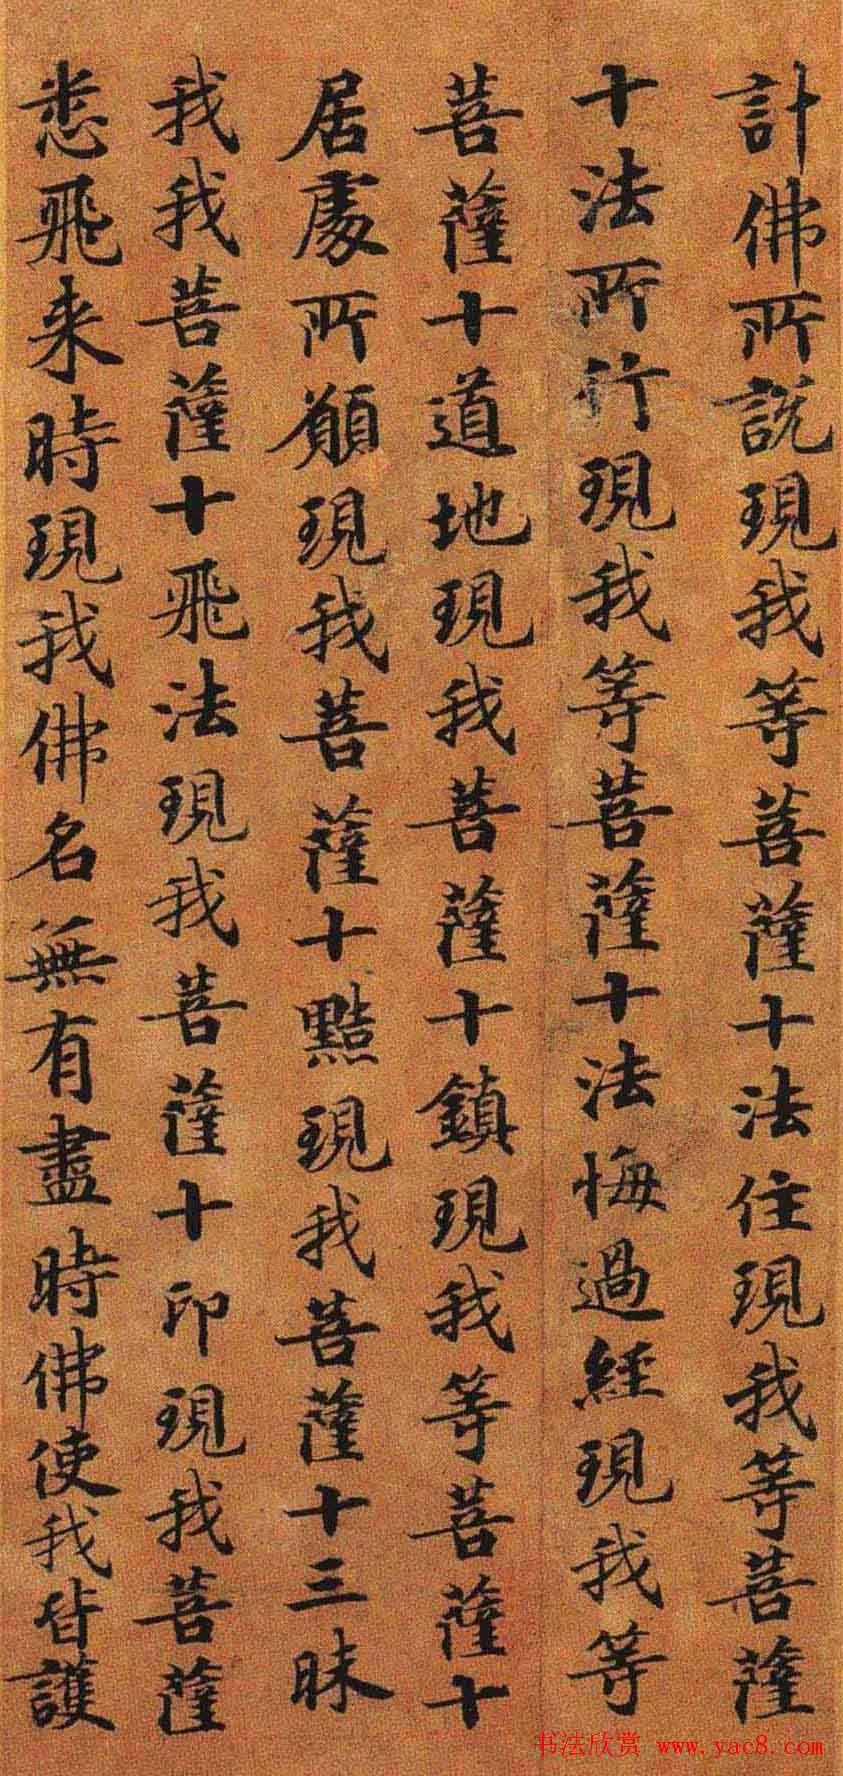 計佛所說現我等菩薩十法住現我等菩薩
十法所行現我等菩薩十法悔過經現我等
菩薩十道地現我菩薩十鎮現我等菩薩十
居處所願現我菩薩十黠現我菩薩十三昧
我我菩薩十飛法現我菩薩十印現我菩薩
悉飛来時現我佛名無有盡時佛使我皆護
书法欣赏 www.yac8.com